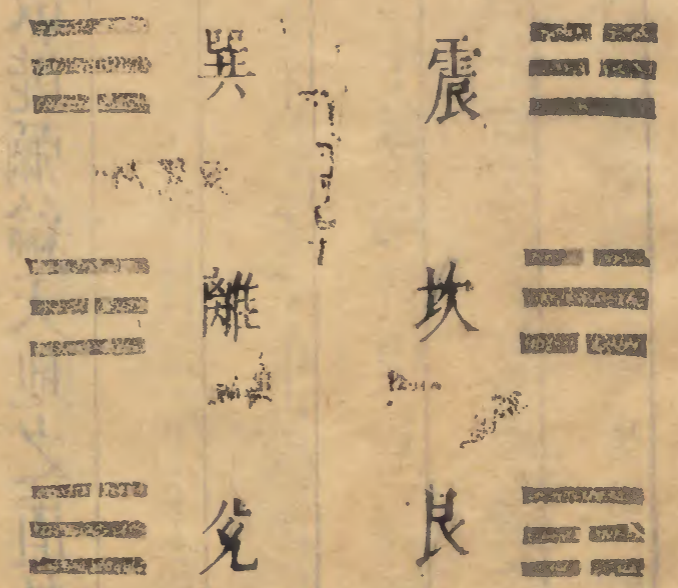 震
坎
艮
巽
離
兌